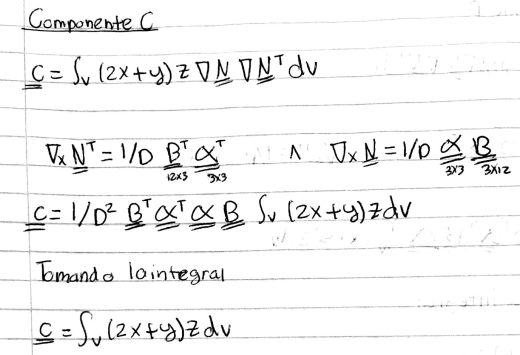 Componente C
C = ∫v (2x+y) z ∇N ∇Nᵀ dv
∇x Nᵀ = 1/D Bᵀ αᵀ ∧ ∇x N = 1/D α B
12x3 3x3 3x3 3x12
C = 1/D² Bᵀ αᵀ α B ∫v (2x+y) z dv
Tomando la integral
C = ∫v (2x+y) z dv